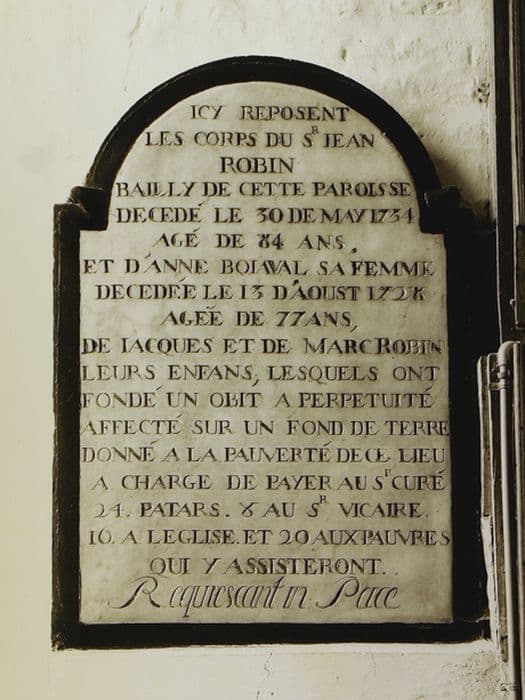 ICY REPOSENT
LES CORPS DU Sʳ IEAN
ROBIN
BAILLY DE CETTE PAROISSE
DECEDÉ LE 30 DE MAY 1734
AGÉ DE 84 ANS,
ET D'ANNE BOIAVAL SA FEMME
DECEDÉE LE 13 D'AOUST 1728
AGEÉ DE 77 ANS,
DE IACQUES ET DE MARC ROBIN
LEURS ENFANS, LESQUELS ONT
FONDÉ UN OBIT A PERPETUITÉ
AFFECTÉ SUR UN FOND DE TERRE
DONNÉ A LA PAUVERTÉ DE CE LIEU
A CHARGE DE PAYER AU Sʳ CURÉ
24. PATARS. 8 AU Sʳ VICAIRE.
16. A LEGLISE. ET 20 AUX PAUVRES
QUI Y ASSISTERONT.
Requiescant in Pace